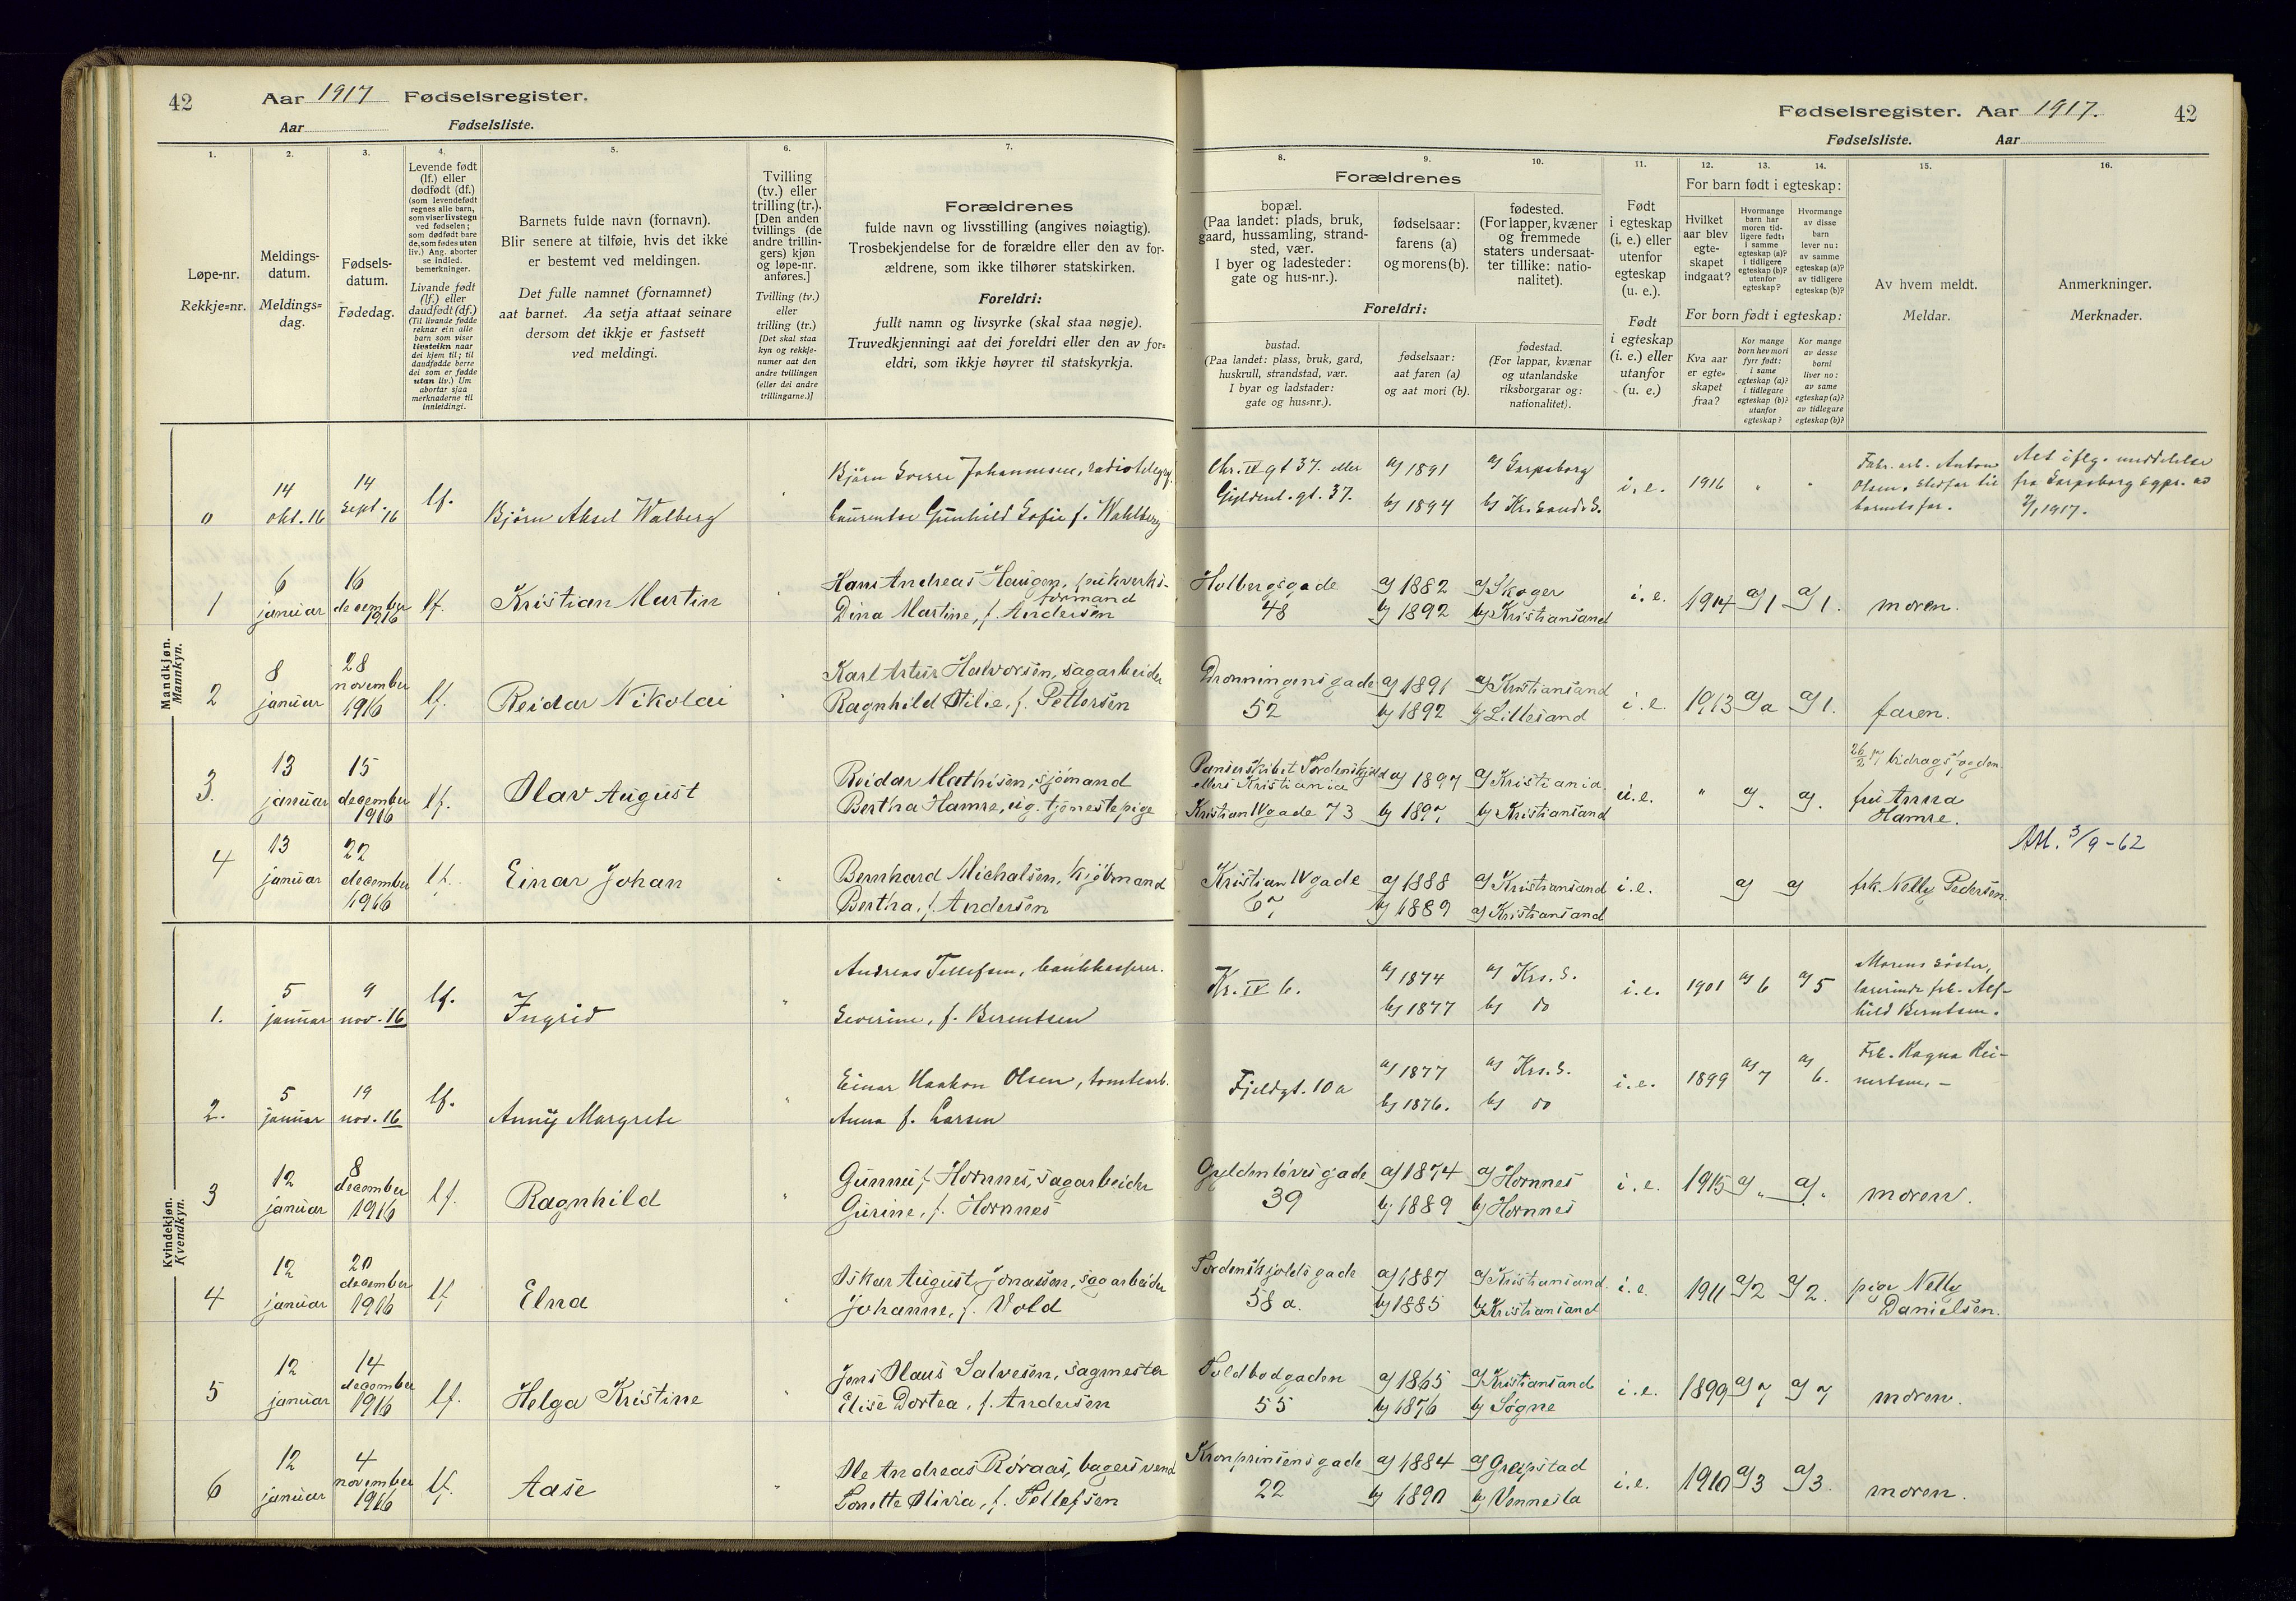 42 Aar 1917 Fødselsregister.
Aar Fødselsliste.
1. 2. 3. 4. 5. 6. 7.
Løpe-nr.
Rekkje=nr.
Meldings-
datum.
Meldings=
dag.
Fødsels-
datum.
Fødedag.
Levende født
(lf.) eller
dødfødt (df.)
(som levendefødt
regnes alle barn,
som viser livstegn
ved fødselen;
som dødfødt bare
de, som fødes uten
liv.) Ang. aborter
se indled.
bemerkninger.
Livande født
(lf.) eller
daudfødt (df.)
(Til livande fødde
reknar ein alle
barn som viser
livsteikn naar
dei kjem til; til
daudfødde berre
dei som er fødde
utan liv.) Um
abortar sjaa
merknaderne til
innleidingi.
Barnets fulde navn (fornavn).
Blir senere at tilføie, hvis det ikke
er bestemt ved meldingen.
Det fulle namnet (fornamnet)
aat barnet. Aa setja attaat seinare
dersom det ikkje er fastsett
ved meldingi.
Tvilling
(tv.) eller
trilling (tr.).
[Den anden
tvillings (de
andre trillin-
gers) kjøn
og løpe-nr.
anføres.]
Tvilling (tv.)
eller
trilling (tr.)
[Det skal staa
kyn og rekkje-
numer aat den
andre tvillingen
(eller dei andre
trillingarne.)]
Forældrenes
fulde navn og livsstilling (angives nøiagtig).
Trosbekjendelse for de forældre eller den av for-
ældrene, som ikke tilhører statskirken.
Foreldri:
fullt namn og livsyrke (skal staa nøgje).
Truvedkjenningi aat dei foreldri eller den av for=
eldri, som ikkje høyrer til statskyrkja.
Mandkjøn.
Mannkyn.
0 14 okt. 16 14 Sept. 16 lf. Bjørn Aksel Walberg
Bjørn Sverre Johannesen, radiotelegrf.
Laurentse Gunhild Sofie f. Wahlberg
1 6 januar 16 december 1916 lf. Kristian Martin
Hans Andreas Haugen,
formand
Dina Martine, f. Andersen
2 8 januar 28 november 1916 lf. Reidar Nikolai
Karl Artur Halvorsen, sagarbeider
Ragnhild Otilie, f. Pettersen
3. 13 januar 15 december 1916 lf. Olav August
Reidar Mathisen, sjømand
Bertha Hamre, ug. tjenestepige
4 13 januar 22 december 1916 lf. Einar Johan
Bernhard Michalsen, kjøbmand
Bertha, f. Andersen
Kvindekjøn.
Kvendkyn.
1. 5 januar 9 nov. 16 lf. Ingrid
Andreas Tellefsen, bankkasserer.
Severine, f. Berentsen
2. 5 januar 19 nov. 16 lf. Anny Margrete
Einar Haakon Olsen, tomtearb.
Anna f. Larsen
3 12 januar 8 december 1916 lf. Ragnhild
Gunnuf Hornnes, sagarbeider
Gurine, f. Hornnes
4 12 januar 20 december 1916 lf. Elna
Oskar August Jonassen, sagarbeider
Johanne, f. Vold
5 12 januar 14 december 1916 lf. Helga Kristine
Jens Olaus Salvesen, sagmester
Elise Dortea, f. Andersen
6 12 januar 4 november 1916 lf. Aase
Ole Andreas Røraas, bagersvend
Tonette Olivia, f. Tellefsen
Fødselsregister. Aar 1917. 42
Fødselsliste. Aar
8. 9. 10. 11. 12. 13. 14. 15. 16.
Forældrenes
bopæl.
(Paa landet: plads, bruk,
gaard, hussamling, strand-
sted, vær.
I byer og ladesteder:
gate og hus-nr.).
fødselsaar:
farens (a)
og morens (b).
fødested.
(For lapper, kvæner
og fremmede
staters undersaat-
ter tillike: natio-
nalitet).
Foreldri:
bustad.
(Paa landet: plass, bruk, gard,
huskrull, strandstad, vær.
I byar og ladstader:
gate og hus=nr.).
fødselsaar:
aat faren (a)
og aat mori (b).
fødestad.
(For lappar, kvænar
og utanlandske
riksborgarar og:
nationalitet).
Født
i egteskap
(i. e.) eller
utenfor
egteskap
(u. e.).
Født
i egteskap
(i. e.) eller
utanfor
(u. e.)
For barn født i egteskap:
Hvilket
aar blev
egte-
skapet
indgaat?
Hvormange
barn har
moren tid-
ligere født:
i samme
egteskap (a)?
i tidligere
egteskap (b)?
utenfor
egteskap?
Hvormange
av disse
barn
lever nu:
av samme
egteskap (a)?
av tidligere
egteskap (b)?
For born født i egteskap:
Kva aar
er egte=
skapet
fraa?
Kor mange
born hev mori
fyrr født:
i same
egteskap (a)?
i tidlegare
egteskap (b)?
utanfor
egteskap?
Kor mange
av desse
borni
liver no:
av same
egteskap (a)?
av tidlegare
egteskap (b)?
Av hvem meldt.
Meldar.
Anmerkninger.
Merknader.
Chr. IV gt 37. eller a) 1891 a) Sarpsborg i. e. 1916 " "
Gyldenl. gt. 37. b) 1894 b) Kr.sand S.
Fabr. arb. Anton
Olsen. Stedfar til
barnets far.
Act iflg. meddelelse
fra Sarpsborg
1917.
Holbergsgade a) 1882 a) Skoger i. e. 1914 a) 1 a) 1. moren.
48 b) 1892 b) Kristiansand
Dronningensgade a) 1891 a) Kristiansand i. e. 1913 a) a a) 1. faren.
52 b) 1892 b) Lillesand
Panserskibet Tordenskjold a) 1897 a) Kristiania u. e. " a) " a) "
ellers Kristiania
Kristian IV gade 73 b) 1897 b) Kristiansand
26/2 17 bidragsfogden
fru Anna
Hamre.
Att. 3/9-62
Kristian IV gade a) 1888 a) Kristiansand i. e. a) a) frk. Nelly Pedersen.
67 b) 1889 a) Kristiansand
Kr. IV 6. a) 1874 a) Krs. S. i. e. 1901 a) 6 a) 5
b) 1877 b) do
Morens søster,
lærerinde frk. Alf-
hild Berntsen.
Fjeldgt. 10 a a) 1877 a) Krs. S. i. e. 1899 a) 7 a) 6.
b) 1876. b) do
Frk. Ragna Rei-
nertsen. -
Gyldenløves gade a) 1874 a) Hornnes i. e. 1915 a) " a) " moren.
39 b) 1889 b) Hornnes
Tordenskjolds gade a) 1887 a) Kristiansand i. e. 1911 a) 2 a) 2. pige Nelly
58 a. b) 1885 b) Kristiansand Danielsen.
Toldbodgaden a) 1865 a) Kristiansand i. e. 1899 a) 7 a) 7 moren.
55 b) 1876 b) Søgne
Kronprinsens gade a) 1884 a) Greipstad i. e. 1910 a) 3 a) 3. moren.
22 b) 1890 b) Vennesla